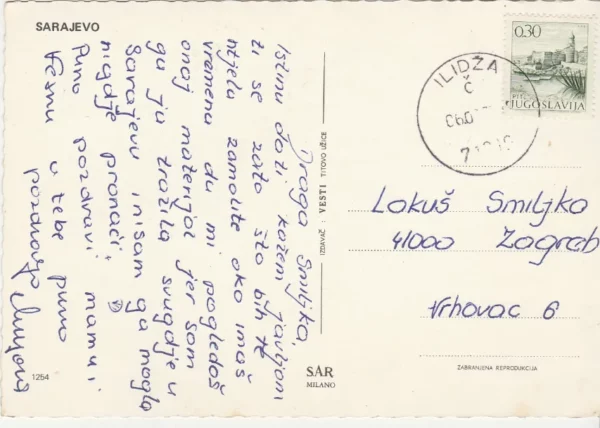 SARAJEVO
Draga Smiljka,
Istinu doći kažem javljam
ti se zato što bih te
htjela zamoliti ako imaš
vremena da mi pogledaš
onaj materijal jer sam
ga ja tražila svugdje u
Sarajevu i nisam ga mogla
nigdje pronaći.
Puno pozdravi mamu i
Vesnu u tebe puno
pozdravlja
1254
IZDAVAČ: VESTI TITOVO UŽICE
SAR
MILANO
0,30
JUGOSLAVIJA
ILIDŽA
Č
71210
Lokuš Smiljka
41000 Zagreb
Vrhovac 6
ZABRANJENA REPRODUKCIJA